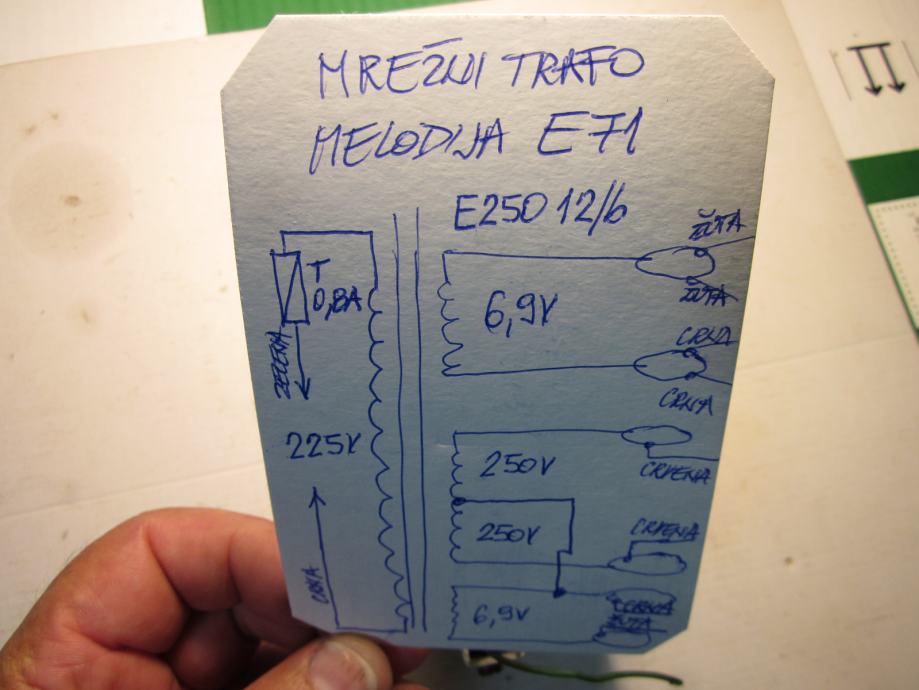 MREŽNI TRAFO
MELODIJA E71
E250 12/6
ŽUTA
T
0,8A
ŽUTA
6,9V
CRNA
ZELENA
CRNA
225V
250V
CRVENA
250V
CRVENA
CRNA
6,9V